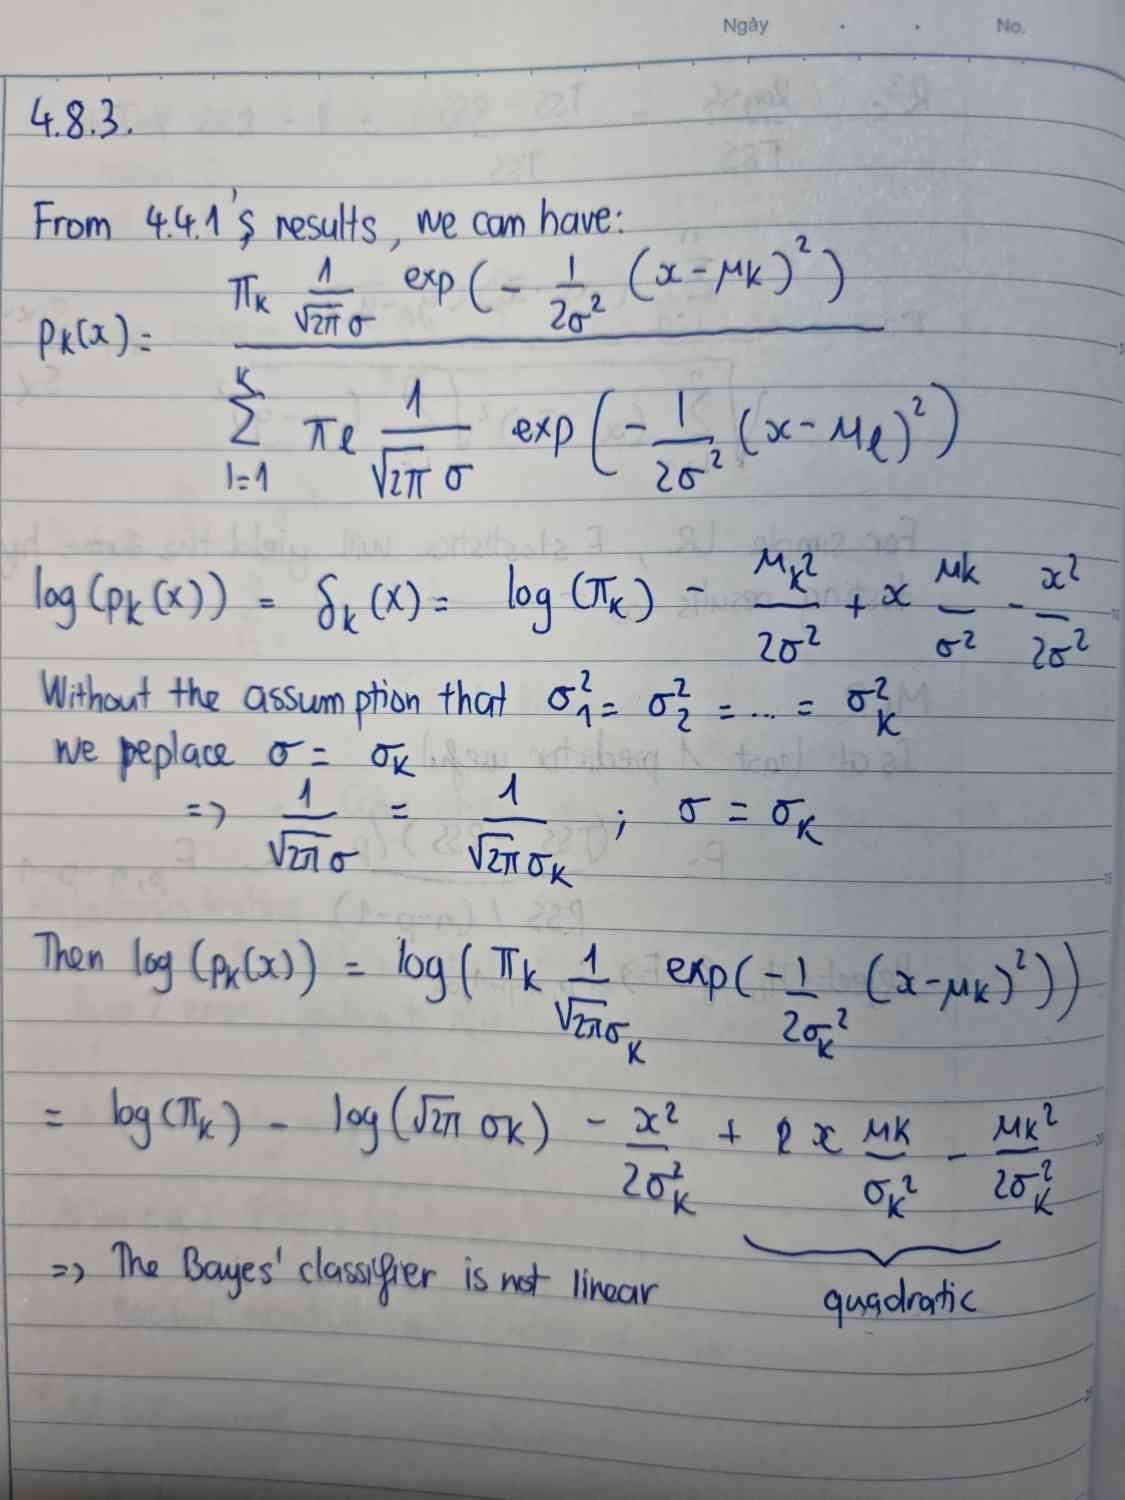 Ngày . . No.
4.8.3.
From 4.4.1's results, we can have:
pk(x) = πk 1/(√2π σ) exp(- 1/2σ² (x-μk)²) / ∑ᴷ l=1 πl 1/(√2π σ) exp(- 1/2σ² (x-μl)²)
log(pk(x)) = δk(x) = log(πk) - μk²/2σ² + x μk/σ² - x²/2σ²
Without the assumption that σ₁² = σ₂² = ... = σK²
we peplace σ = σK
=> 1/(√2π σ) = 1/(√2π σK) ; σ = σK
Then log(pk(x)) = log(πk 1/(√2π σK) exp(- 1/2σK² (x-μk)²))
= log(πk) - log(√2π σK) - x²/2σK² + 2x μk/σK² - μk²/2σK²
=> The Bayes' classifier is not linear
quadratic